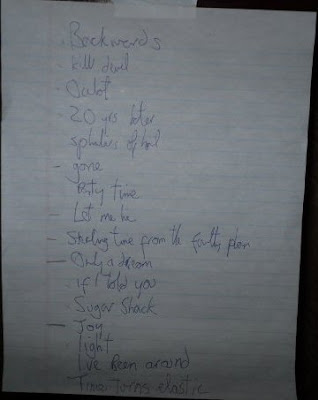 Backwards
kill devil
Ocelot
20 yrs later
splinters of hail
- gone
Party time
Let me lie
- Stealing time from the faulty plan
- Only a dream
if I told you
Sugar Shack
- Joy
light
I've Been around
Time Turns elastic